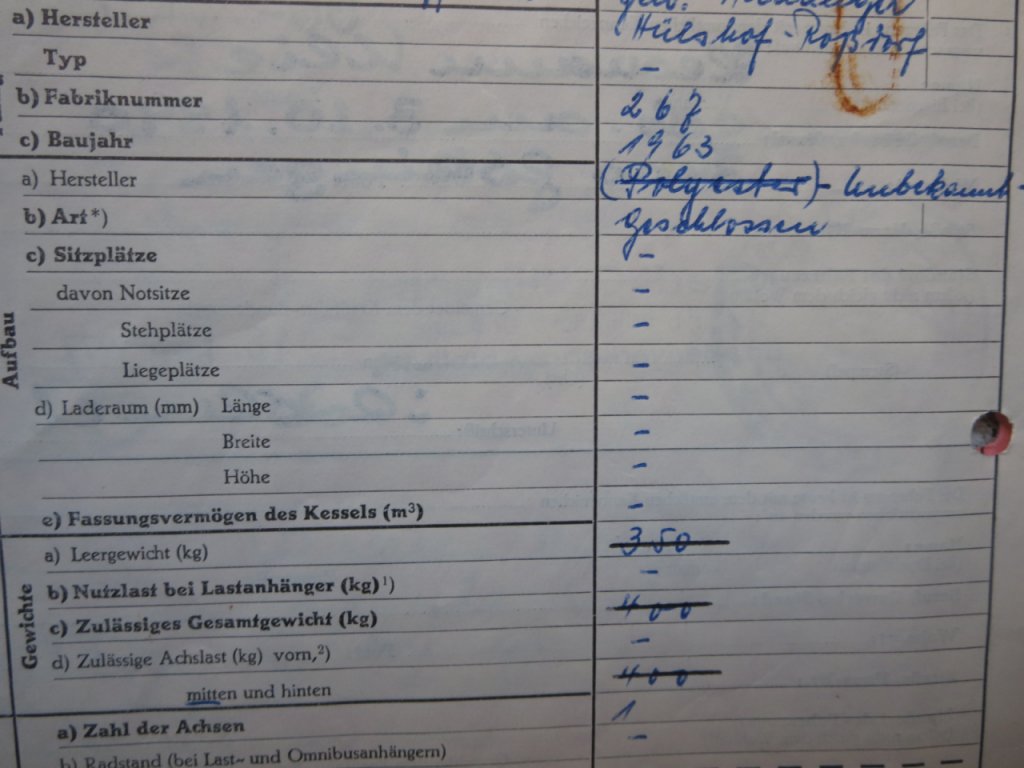 a) Hersteller
Hülshof - Roßdorf
Typ -
b) Fabriknummer 267
c) Baujahr 1963
Aufbau
a) Hersteller (Polyester) - Unbekannt -
b) Art*) geschlossen
c) Sitzplätze -
davon Notsitze -
Stehplätze -
Liegeplätze -
d) Laderaum (mm) Länge -
Breite -
Höhe -
e) Fassungsvermögen des Kessels (m³) -
Gewichte
a) Leergewicht (kg) 350
b) Nutzlast bei Lastanhänger (kg)¹) -
c) Zulässiges Gesamtgewicht (kg) 400
d) Zulässige Achslast (kg) vorn,²) -
mitten und hinten 400
a) Zahl der Achsen 1
b) Radstand (bei Last- und Omnibusanhängern) -